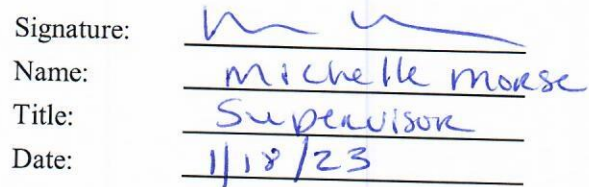 Signature:
Name: Michelle Morse
Title: Supervisor
Date: 1/18/23